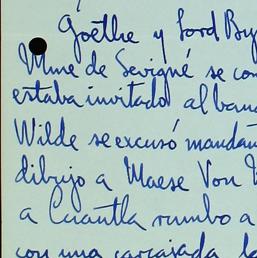 Goethe y Lord By
Mme de Sevigné se con
estaba invitado al banq
Wilde se excusó mandan
dibujo a Maese Von
a Cuautla rumbo a
con una carcajada la